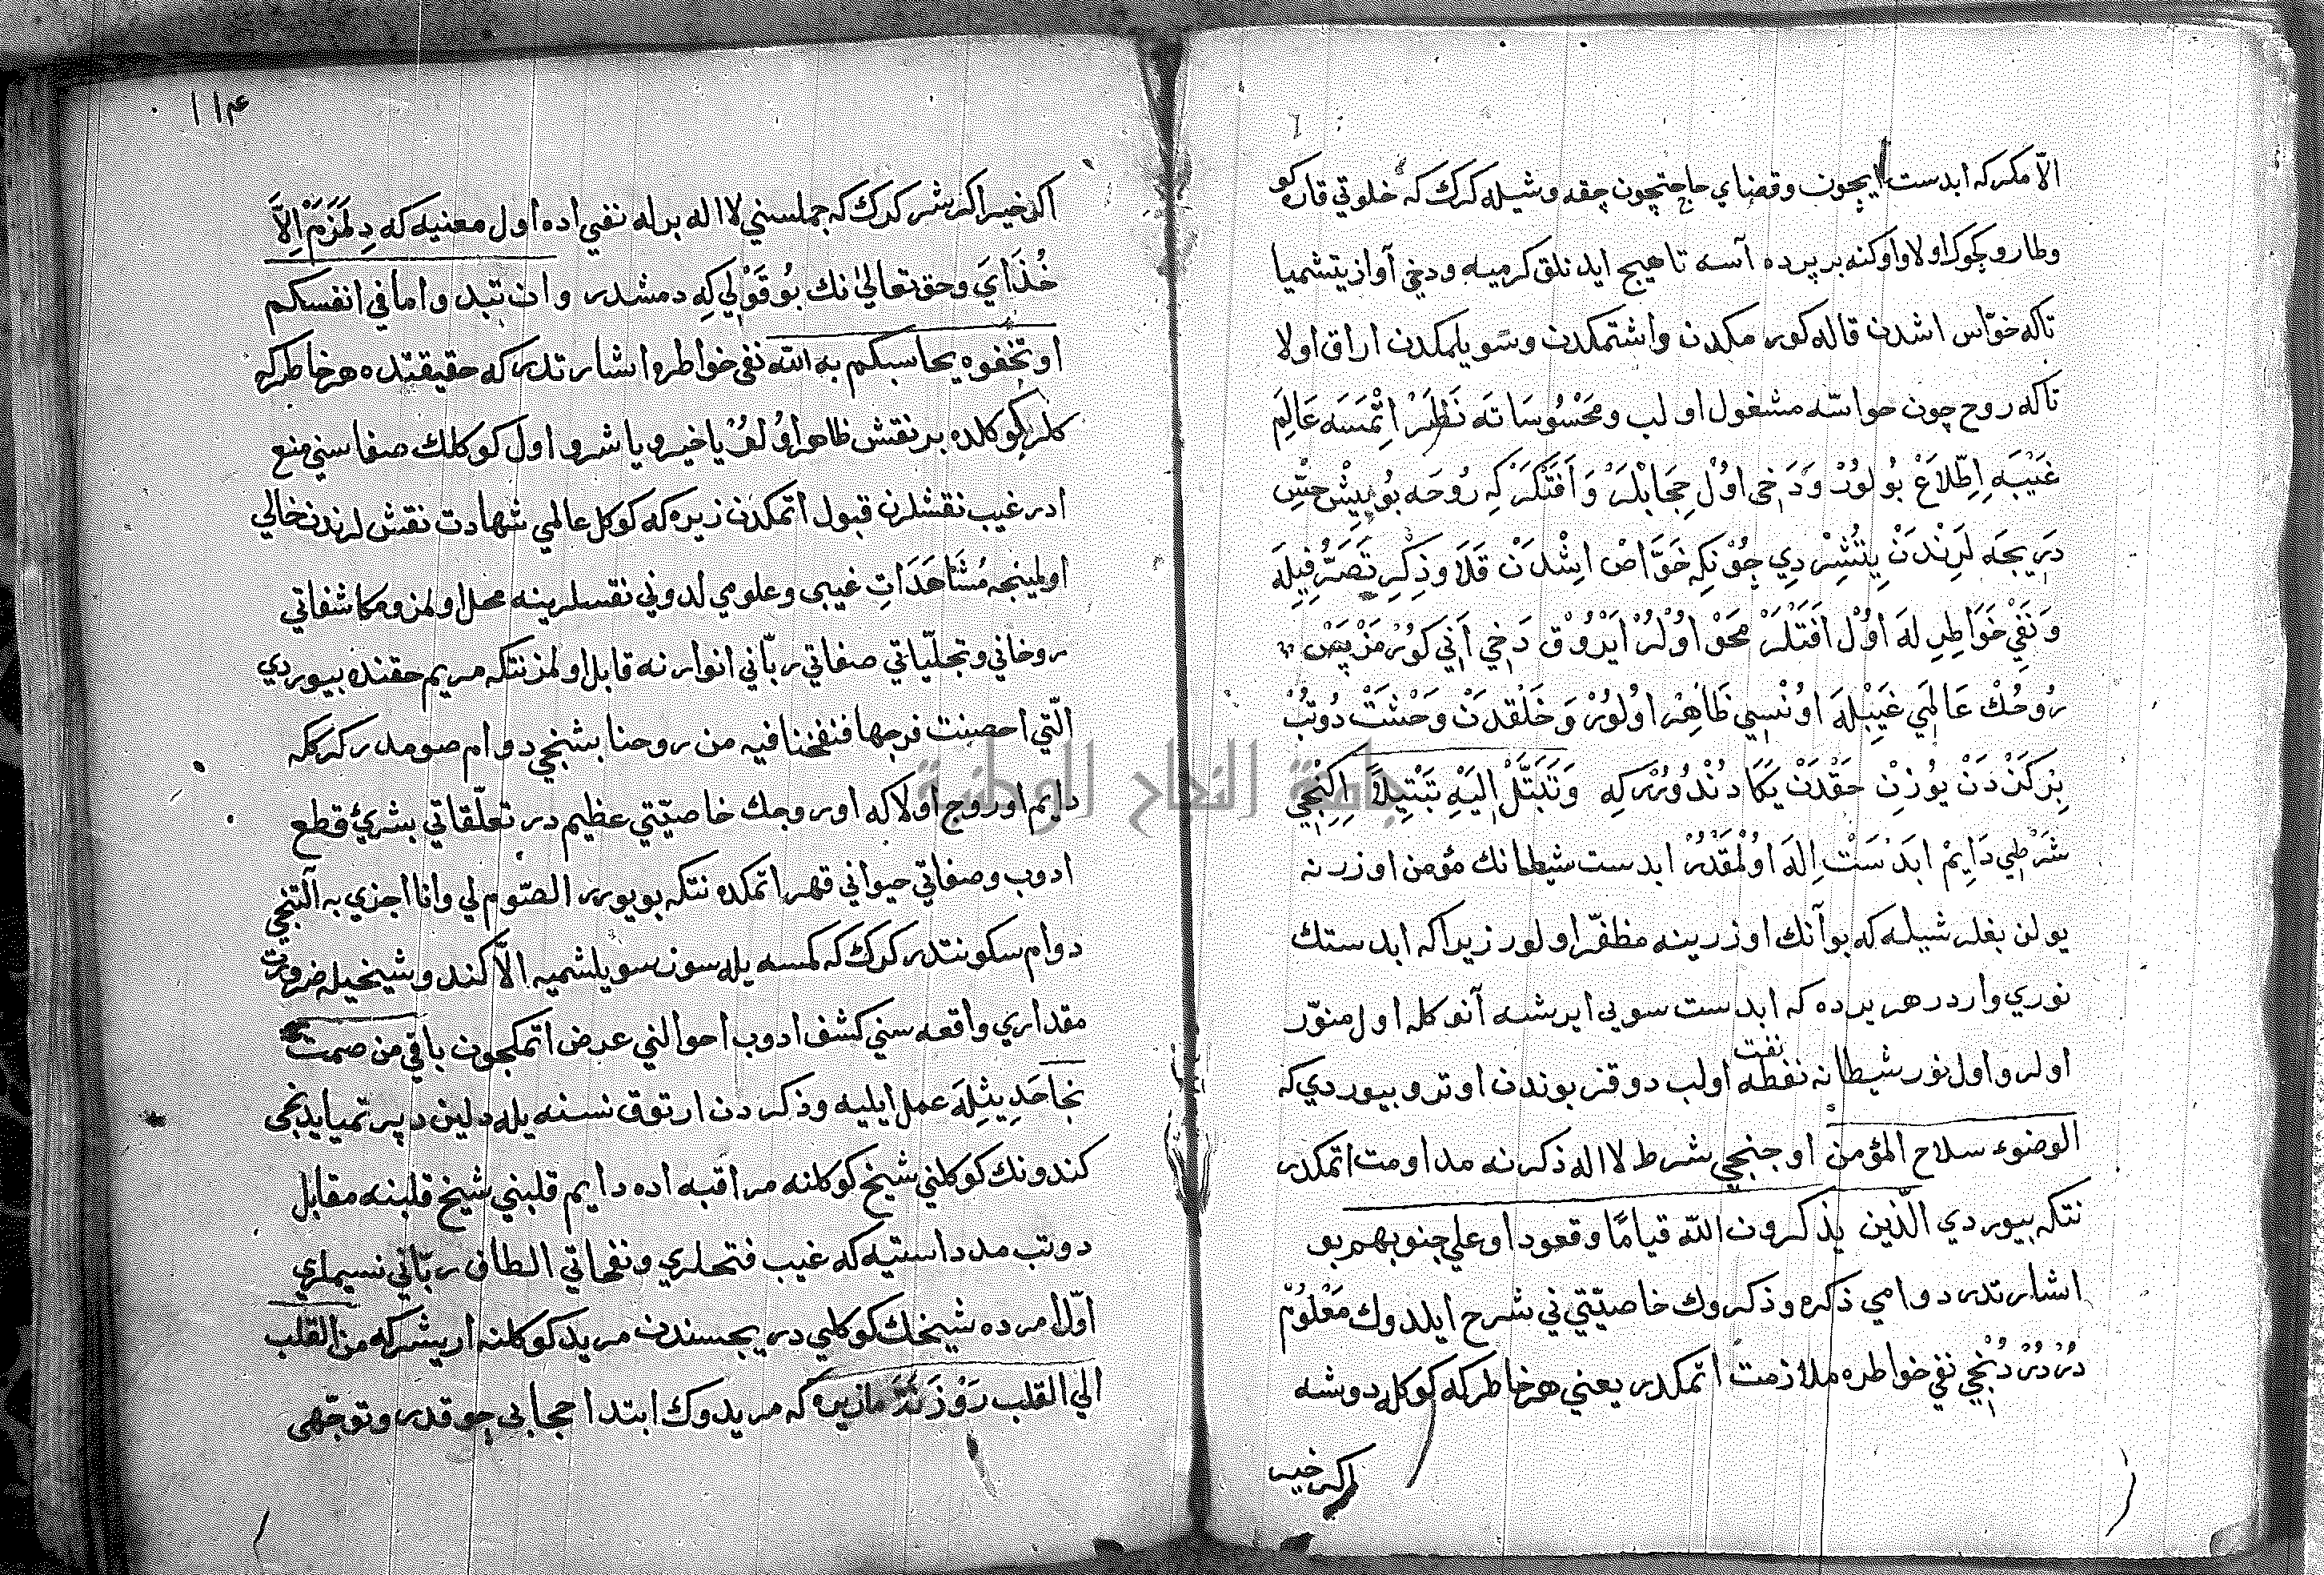 الّا مكركه ابدست ايچون وقضاي حاجتچون چقه وشيله كرك كه خلوتي قاره كو
وطار وكچوك اولا واوكنه بر پرده آسه تا هيچ ايدنلق كرميه ودخي آواز يتشميا
تاكه خوّاس اشدن قاله كورمكدن واشتمكدن وسويلمكدن اراق اولا
تاكه روح چون حواسّه مشغول اولب ومَحْسُوسَاتَه نَظَرْ اِتْمَسَه عَالِمِ
غَيْبَه اِطِّلاَعْ بُولُورْ وَدَخِى اُوْلْ حِجَابْلَرْ وَآفَتْلَرْ كِه رُوحَه بُو بِيشْ حِسّ
دَرِيجَه لَرِنْدَنْ يِتُشِرْدِي چُوْنكِه خَوَّاصْ اِشْدَنْ قَلَا وَذِكِر تَصَرُّفِيلَه
وَنَفْيِ خَوَاطِرِ لَه اُوْل آفَتْلَرْ مَحَوْ اُوْلُرْ اَيْرُوْق دَخِي اَنِي كَوُرْمَزْ پَسْ
رُوحُكْ عَالَمِي غَيْبِلَه اُوْنْسِي ظَاهِرْ اُولُورْ وَخَلْقدَنْ وَحْشَتْ دُوتُبْ
بِزْكَزْدَنْ يُوزِنْ حَقْدَنْ يَكَا دُنْدُوُرْركِه وَتَبَتَّلْ اِلَيْهِ تَبْتِيلاً اِكِنْجِي
شَرْطِي دَايِمْ ابَدَسَتْ اِلَه اُوْلْمَقْدُرْ ابدست شيطانك مؤمن اوزرنه
يولن بغلر شيله كه بو آنك اوزرينه مظفّر اولور زيرا كه ابدستك
نوري واردر هر يرده كه ابدست سويي ايرشه آنوكله اول منوّر
اولر واول نور شيطانه نفطه نفت اولب دوقنر بوندن اوترو بيوردي كه
الوضوء سلاح المؤمن اوچنجي شرط لا اله ذكرنه مداومت اتمكدر
نتكه بيوردي الّذين يذكرون اللّه قيامًا وقعودا وعلي جنوبهم بو
اشارتدر دوامي ذكره وذكروك خاصيّتي في شرح ايلدوك مَعْلُوُمْ
دُرْ دُرْدُنْجِي نفي خواطره ملازمت اتمكدر يعني هر خاطر كه كوكله دوشه
اكر خير
١١٤
اكر خير اكر شر كرك كه جملسني لا اله برله نفي اده اول معنيه كه دِلَمْزَمْ اِلاَّ
خُذَايَ وحق تعالىٰ نك بُو قَوْلِي كِه دمشدر وان تبدوا ما في انفسكم
او تخفوه يحاسبكم به اللّه نفي خواطره اشارتدر كه حقيقتده هر خاطر كه
كلر كوكلده بر نقش ظاهر اُوْلُرْ يا خير ويا شر و اول كوكلك صفاسني منع
ادر غيب نقشلرن قبول اتمكدن زيره كه كوكل عالمي شهادت نقش لرندن خالي
اولمينجه مُشَاهَدَاتِ غيبى وعلومي لدوني نقسلرينه محل اولمز ومكاشفاتي
روحاني وتجلّياتي صفاتي ربّاني انوارنه قابل اولمز نتكه مريم حقنده بيوردي
الّتي احصنت فرجها فنفخنا فيه من روحنا بشنجي دوام صومدر كركه
دايم اوروج اولا كه اوروجك خاصيّتي عظيم در تعلّقاتي بشري قطع
ادوب وصفاتي حيواني قهر اتمكده نتكه بويورر الصّوم لي وانا اجزي به آلتنجي
دوام سكونتدر كرك كه كمسه يله سوز سويلشميه الّا كندو شيخيله ضرورت
مقداري واقعه سني كشف ادوب احوالني عرض اتمكچون باقي من صمت
نجا حَدِيثِلَه عمل ايليه وذكردن ارتوق نسنه يله دلين دپرتميا يدنجى
كندونك كوكلني شيخ كوكلنه مراقبه اده دايم قلبني شيخ قلبنه مقابل
دوتب مدد استيه كه غيب فتحلري ونفحاتي الطاف ربّاني نسيملري
اوّل امرده شيخك كوكلي دريجسندن مريد كوكلنه اريشر كه من القلب
الي القلب رَوْزَنَةً زيره كه مريدوك ابتدا حجابي چوقدر وتوجّهى